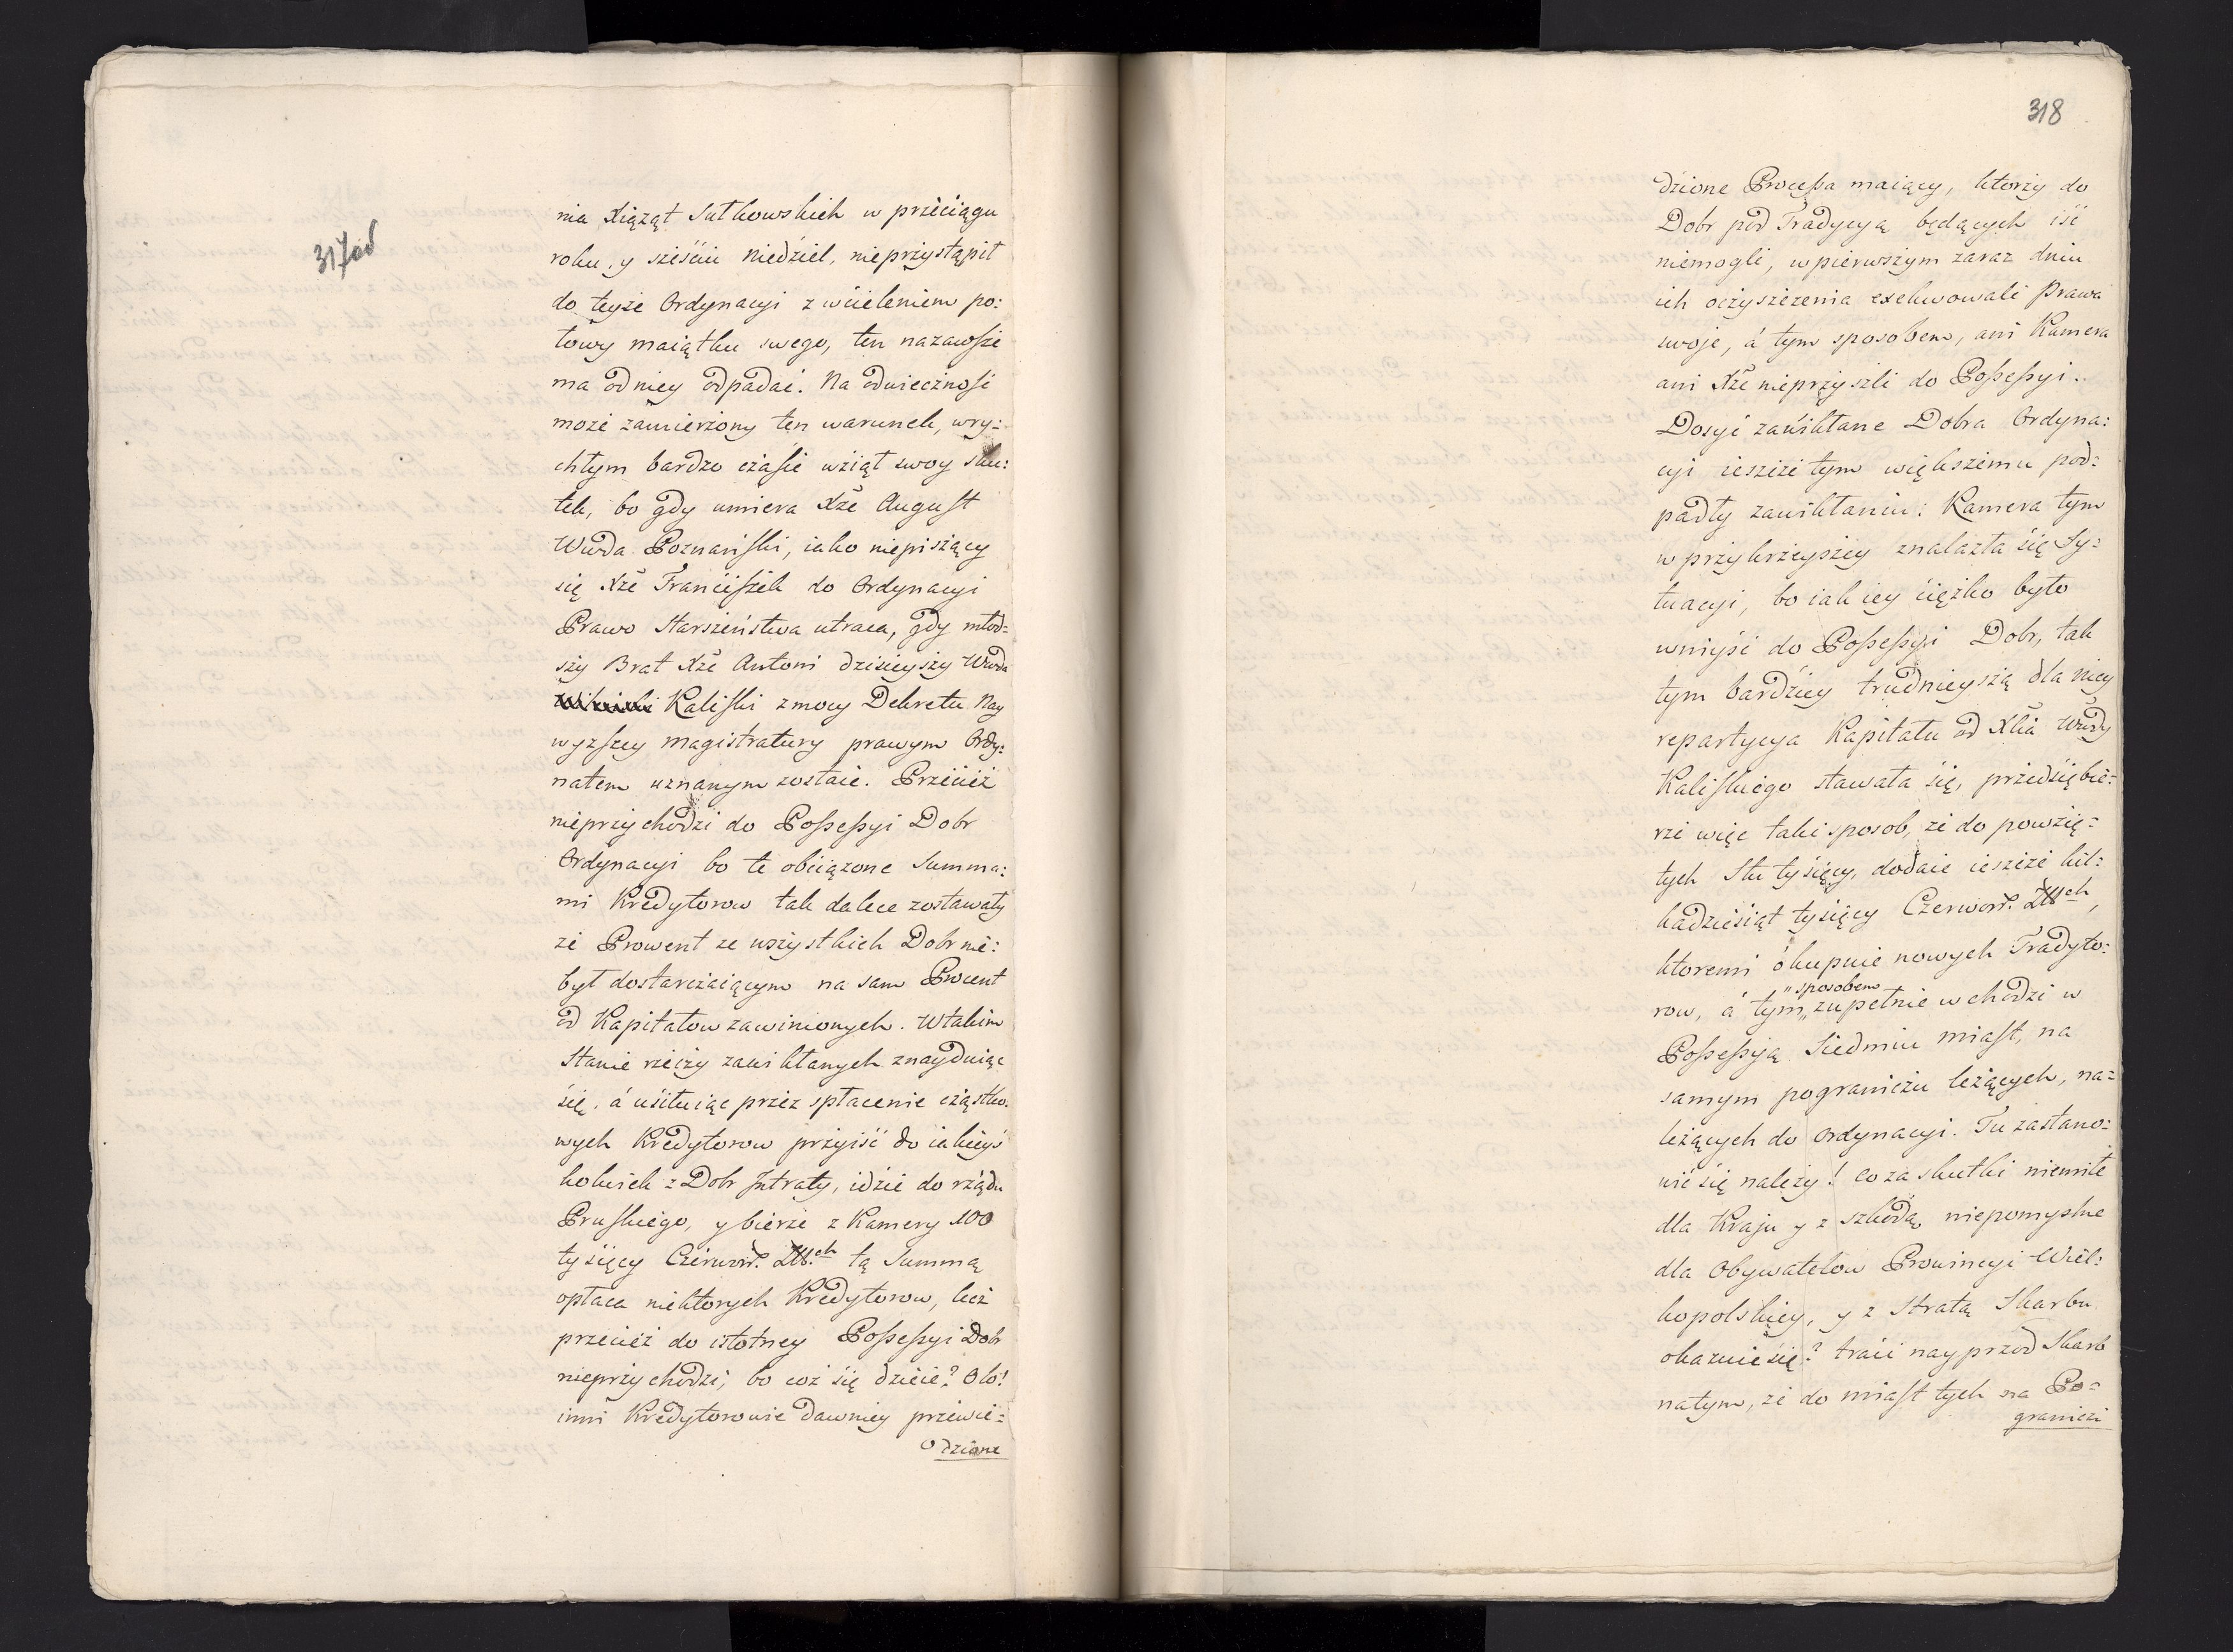 317
nia Xiążąt Sułkowskich w przeciągu
roku, y sześciu Niedziel, nieprzystąpił
do teyże Ordynacyi z wcieleniem po=
łowy maiątku swego, ten nazawsze
ma odniey odpadać. Na odwieczność
może zamierzony ten warunek, wry=
chtym bardzo czasie wziął swoy sku=
tek, bo gdy umiera Xże August
Wwda Poznański, iako niepiszący
się Xże Franciszek do Ordynacyi
Prawo Starszeństwa utraca, gdy młod=
szy Brat Xże Antoni dzisieyszy Wwda
Kaliski zmocy Dekretu Nay
wyższey Magistratury prawym Ordy=
natem uznanym zostaie. Przecież
nieprzychodzi do Possessyi Dobr
Ordynacyi bo te obciążone Summa=
mi Kredytorow tak dalece zostawały
że Prowent ze wszystkich Dobr nie=
był dostarczaiącym na sam Procent
od Kapitałow zawinionych. Wtakim
Stanie rzeczy zawikłanych znayduiąc
się, á usiłuiąc przez spłacenie cząstko=
wych Kredytorow przyiść do iakieyś
kolwiek z Dobr Jntraty, idzie do rządu
Pruskiego, y bierze z Kamery 100
tysięcy Czerwon. Złł.ch tą Summą
opłaca niektorych Kredytorow, lecz
przecież do istotney Possessyi Dobr
nieprzychodzi, bo coż się dzieie? Oto!
inni Kredytorowie dawniey przewie=
dzione
318
dzione Processa maiący, ktorzy do
Dobr pod Tradycyą będących iść
niemogli, wpierwszym zaraz dniu
ich oczyszczenia exekwowali Prawa
swoje, á tym sposobem, ani Kamera
ani Xże nieprzyszli do Possessyi.
Dosyć zawikłane Dobra Ordyna=
cyi ieszcze tym większemu pod=
padły zawikłaniu: Kamera tym
w przykrzeyszey znalazła się Sy=
tuacyi, bo iak iey ciężko było
wniyść do Possessyi Dobr, tak
tym bardziey trudnieyszą dla niey
repartycya Kapitału od Xcia Wwdy
Kaliskiego stawała się, przedsiębie=
rze więc taki sposob, że do powzię=
tych Stu tysięcy, dodaie ieszcze kil=
kadziesiąt tysięcy Czerwon. Złłch,
ktoremi okupuie nowych Tradyto=
row, á tym „sposobem zupełnie wchodzi w
Possessyą Siedmiu miast, na
samym pograniczu leżących, na=
leżących do Ordynacyi. Tu zastano=
wić się należy! co za skutki niemiłe
dla Kraju y z szkodą niepomyslne
dla Obywatelow Prowincyi Wiel=
kopolskiey, y z Stratą Skarbu
okazuie się? traci nayprzod Skarb
natym, że do miast tych na Po=
graniczu